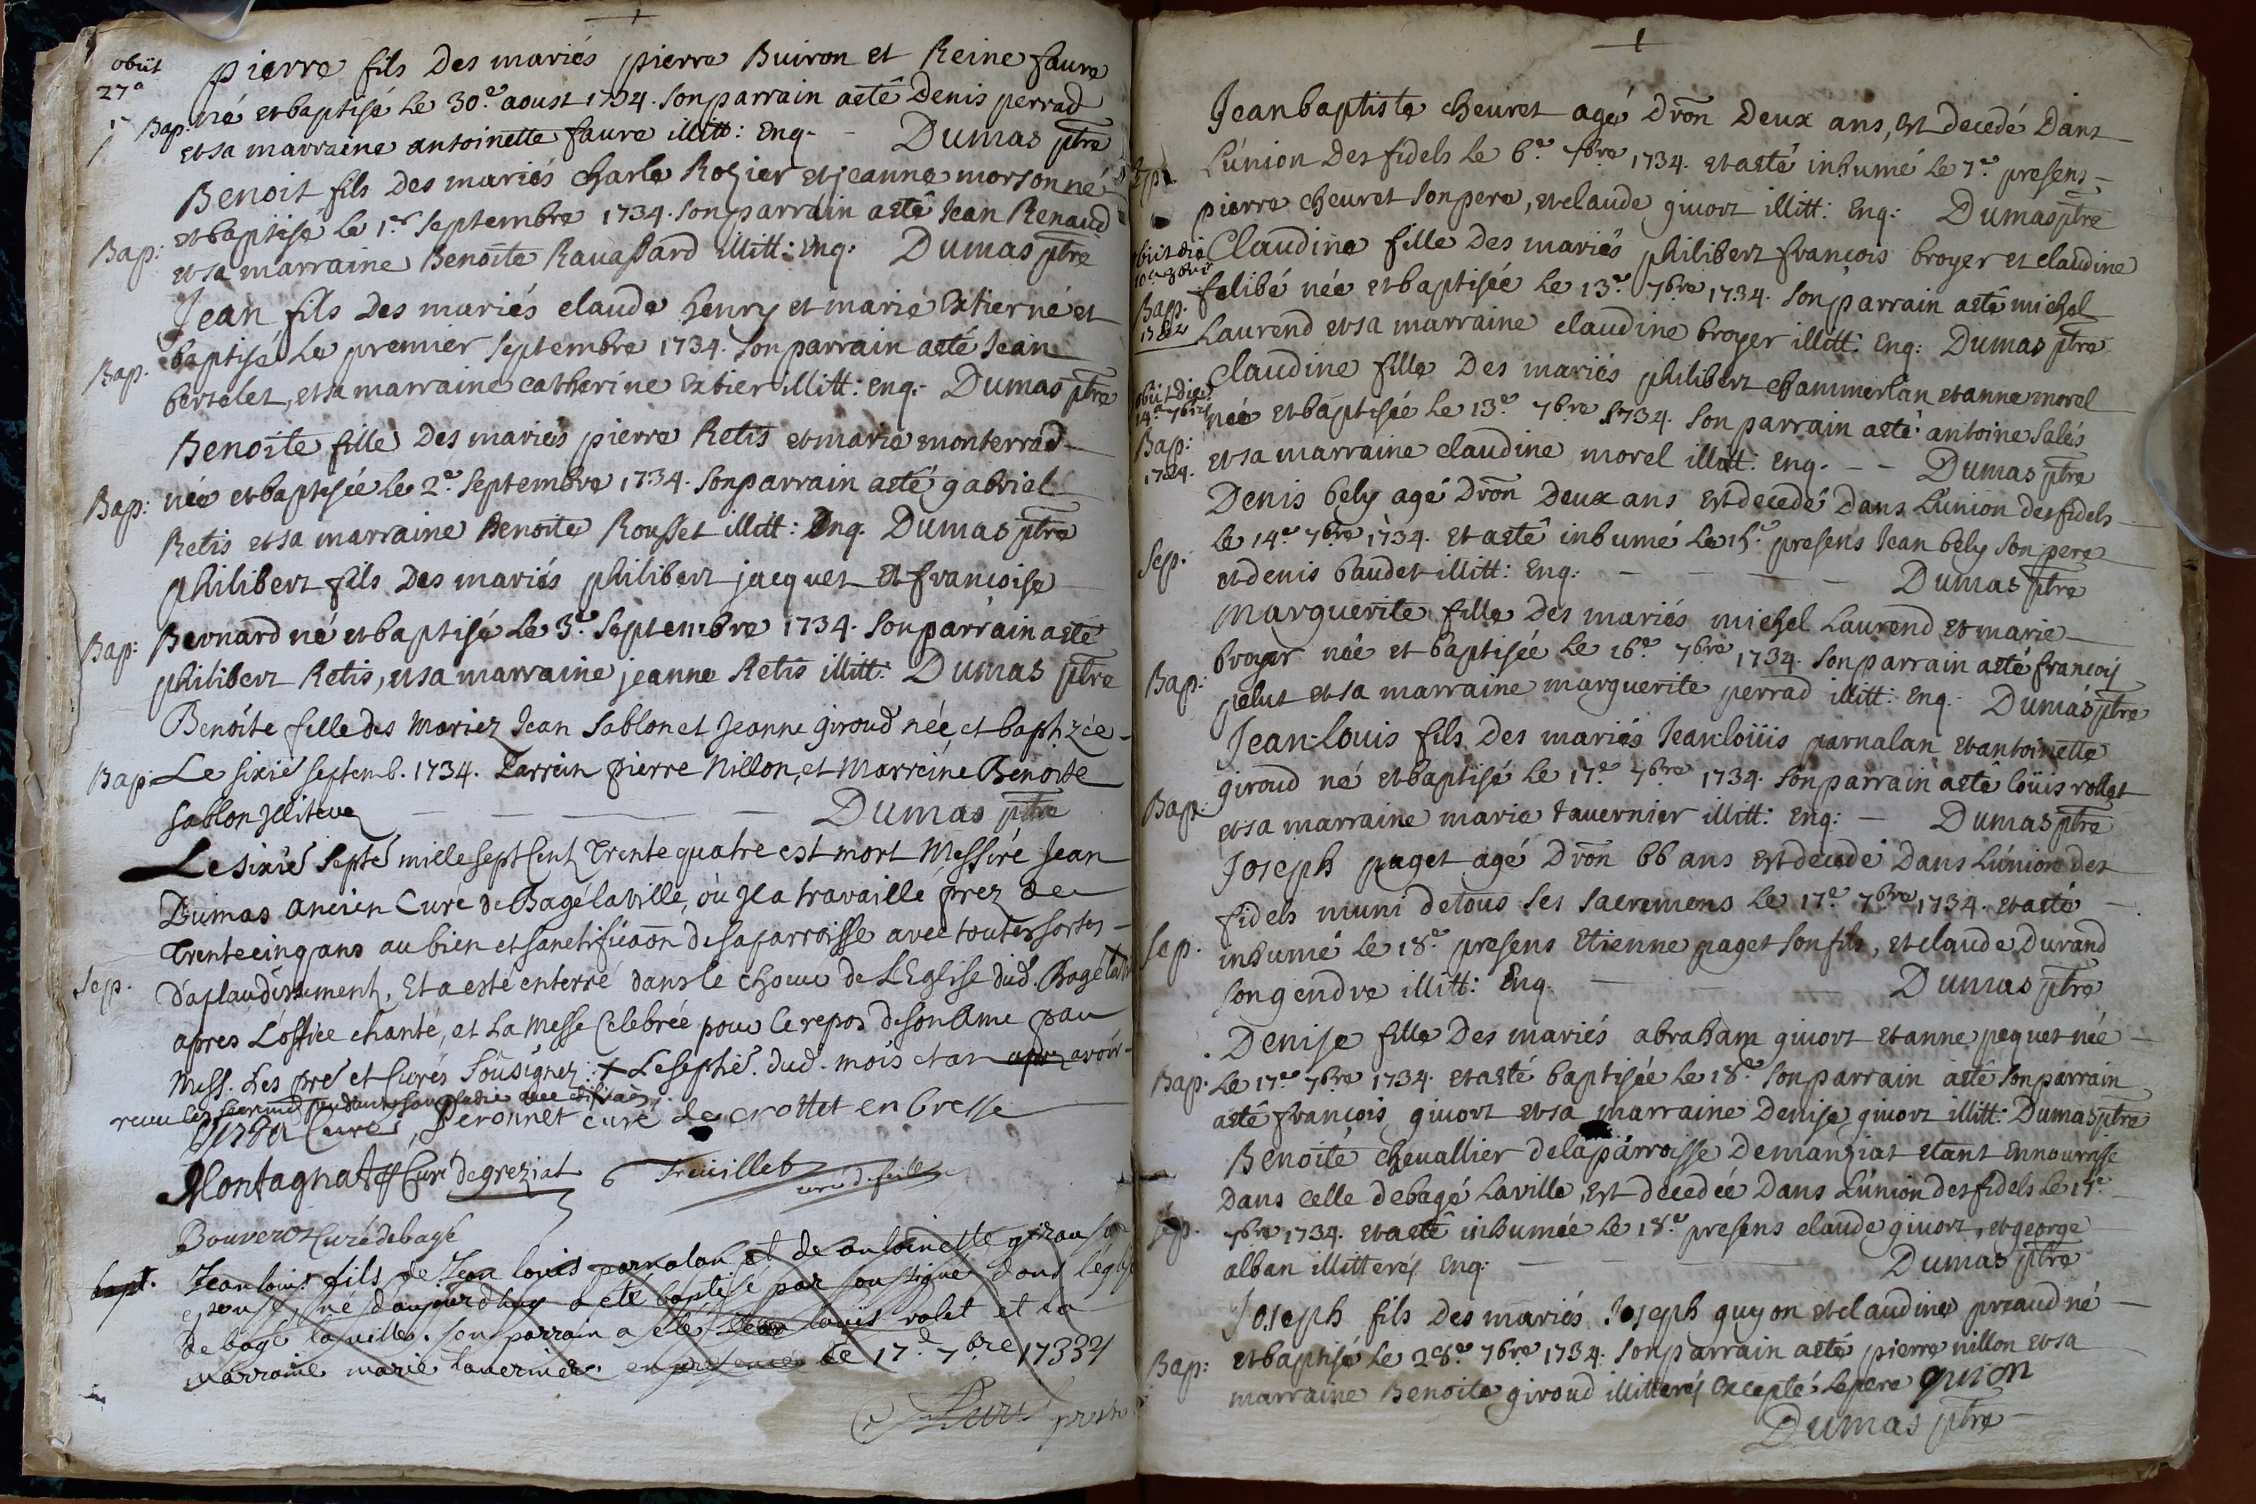 obiit
27e
pierre fils Des mariés pierre Buiron et Reine faure
Bap: né et baptisé Le 30e aoust 1734. Son parrain a eté Denis perrad
et sa marraine antoinette faure illitt: Enq. - Dumas ptre
Benoit fils Des mariés charle Rozier et jeanne morson né
Bap: et baptisé Le 1er Septembre 1734. Son parrain a eté Jean Renaud
et sa marraine Benoite Ravassard illitt: Enq. Dumas ptre
Jean fils Des mariés claude henry et marie Extier né et
Bap. baptisé Le premier Septembre 1734. Son parrain a eté Jean
bertelet, et sa marraine catherine Extier illitt: Enq: Dumas ptre
Benoite fille Des mariés pierre Retis et marie monterrad
Bap: née et baptisée Le 2e Septembre 1734. Son parrain a eté gabriel
Retis et sa marraine Benoite Rousset illitt: Enq. Dumas ptre
philibert fils Des mariés philibert jacquet et françoise
Bap: Bernard né et baptisé Le 3e Septembre 1734. Son parrain a eté
philibert Retis, et sa marraine jeanne Retis illitt: Dumas ptre
Benoite fille des Mariez Jean Sablon et Jeanne giroud née et baptizée
Bap: Le sixie septemb. 1734. Parrein pierre Nillon, et Marreine Benoite
Sablon Illiteré — Dumas ptre
Le sixié Septe mille sept Cent Trente quatre est mort Messire Jean
Dumas ancien Curé de Bagé la ville, où Il a travaillé prez de
Trente cinq ans au bien et sanctificaon de sa parroisse avec toutes sortes
Sep. d'aplaudissement, Et a esté enterré dans le choeur de L'Eglise dud. Bagé la ville
apres L'office chanté, et La Messe Celebrée pour le repos de son Ame par
Mess. Les pre et Curés Sousignez: + Le septie. dud. mois et an apres avoir
receu les sacremens pendant sa maladie
Curé, Peronnet curé de crottet en bresse
Montagnat Curé de greziat Treüillet curé de feillens
Bouverot Curé de bagé
bapt. Jean louis fils de Jean louis parnalan et de antoinette girau sa
epouse, né d'aujourd'huy a eté baptisé par soussigné dans l'église
de bagé la ville. son parrain a eté Jean louis rolet et la
marraine marie tavernier en presence le 17e 7bre 1733 4
Jean baptiste cheuret agé Dron Deux ans, est decedé Dans
Sep. L'union Des fidels Le 6e 7bre 1734. et a eté inhumé Le 7e presens
pierre cheuret son pere, et claude givort illitt: Enq: Dumas ptre
obiit die
10a 8bris
Claudine fille Des mariés philibert françois broyer et claudine
Bap. felibé née et baptisée Le 13e 7bre 1734. Son parrain a eté michel
Laurend et sa marraine claudine broyer illitt: Enq: Dumas ptre
obiit die
14a 7bris
Claudine fille Des mariés philibert chammerlan et anne morel
Bap: née et baptisée Le 13e 7bre 1734. Son parrain a eté antoine Salés
1734. et sa marraine claudine morel illitt: Enq. - - Dumas ptre
Denis bely agé Dron Deux ans est decedé Dans L'union des fidels
Sep. Le 14e 7bre 1734. et a eté inhumé Le 15e presens Jean bely son pere
et denis baudet illitt: Enq: — Dumas ptre
Marguerite fille Des mariés michel Laurend et marie
Bap: broyer née et baptisée Le 16e 7bre 1734. Son parrain a eté françois
pelut et sa marraine marguerite perrad illitt: Enq. Dumas ptre
Jean-louis fils Des mariés Jean-loüis parnalan et antoinette
Bap: giroud né et baptisé Le 17e 7bre 1734. Son parrain a eté loüis rollet
et sa marraine marie tavernier illitt: Enq: — Dumas ptre
Joseph paget agé Dron 66 ans est decedé Dans L'union des
fidels muni de tous ses sacremens Le 17e 7bre 1734. et a eté
Sep. inhumé Le 18e presens Etienne paget son fils, et claude Durand
son gendre illitt: Enq. — Dumas ptre
Denise fille Des mariés abraham givort et anne pequet née
Bap. Le 17e 7bre 1734. et a eté baptisée Le 18e Son parrain a eté Son parrain
a eté françois givort et sa marraine Denise givort illitt: Dumas ptre
Benoite chevallier de la parroisse De manziat etant en nourrise
Dans celle de bagé Laville, est decedée Dans L'union des fidels Le 17e
Sep. 7bre 1734. et a eté inhumée Le 18e presens claude givort, et george
alban illitterés Enq: — Dumas ptre
Joseph fils Des mariés Joseph guyon et claudine preaud né
Bap: et baptisé Le 28e 7bre 1734. Son parrain a eté pierre nillon et sa
marraine Benoite giroud illitterés Excepté Le pere guion
Dumas ptre